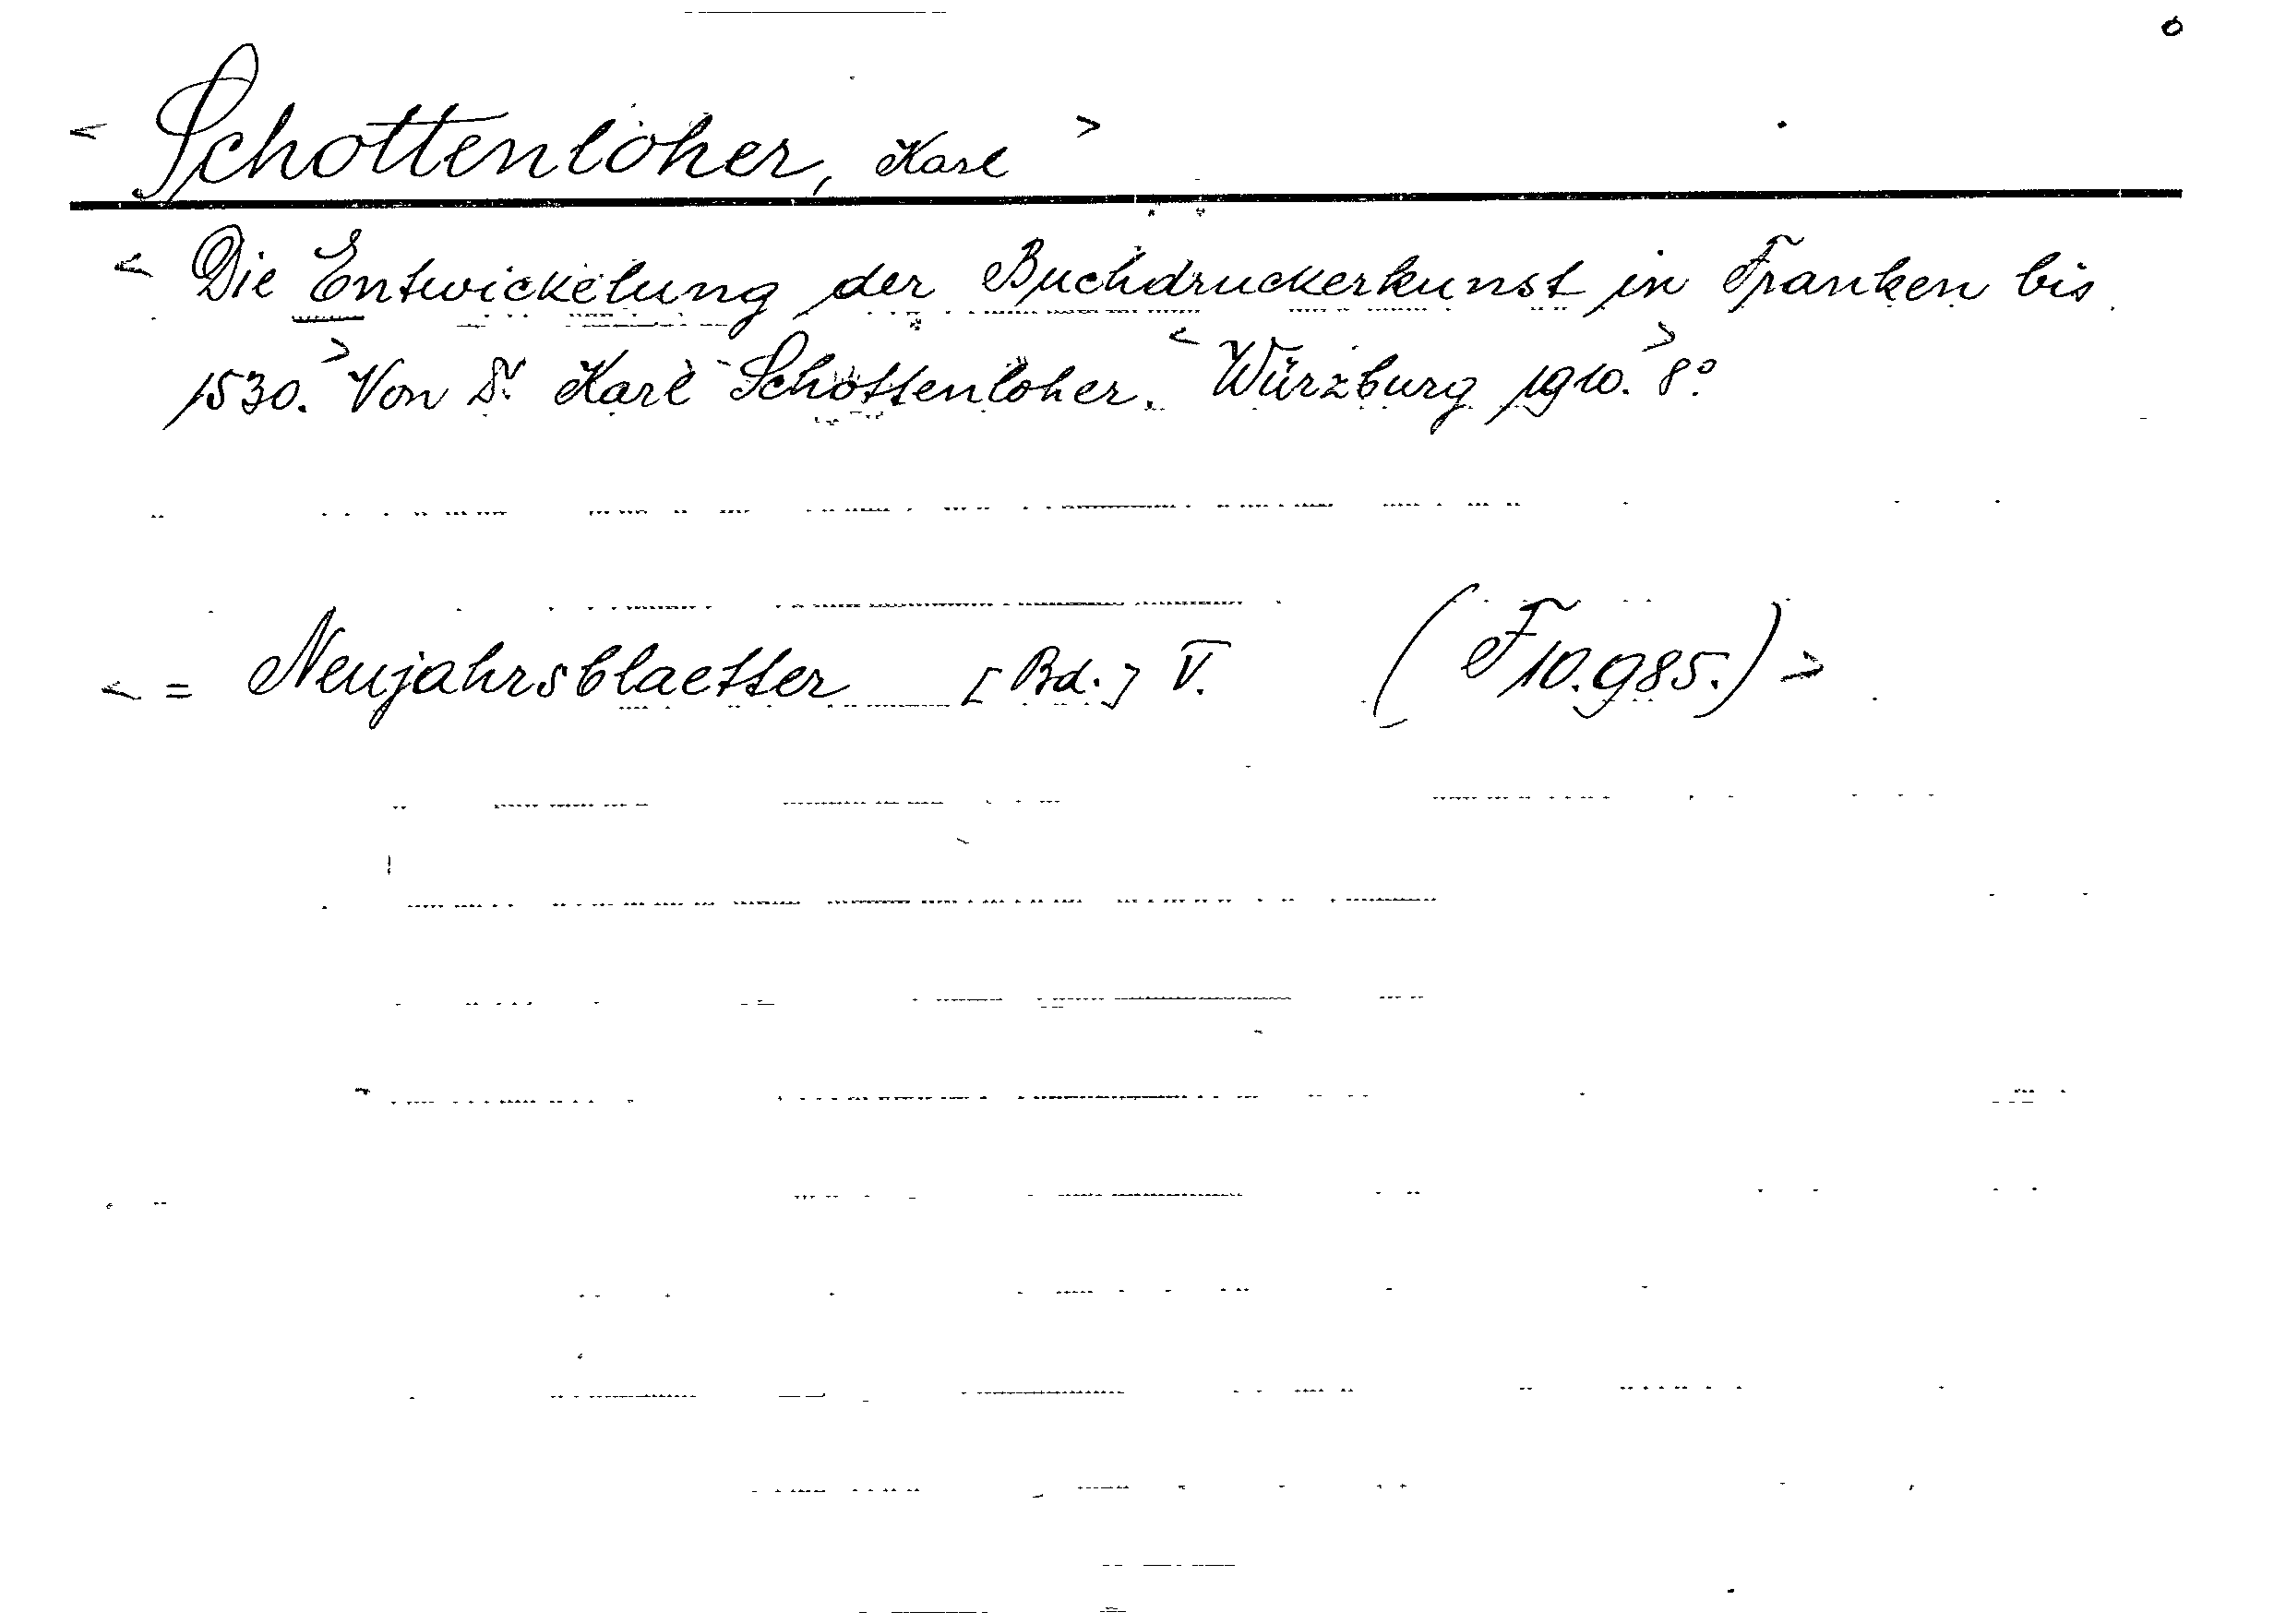 < Schottenloher, Karl >
< Die Entwickelung der Buchdruckerkunst in Franken bis
1530. > Von Dr. Karl Schottenloher. < Würzburg 1910. > 8°.
< = Neujahrsblaetter [Bd.] V. (F 10.985.) >